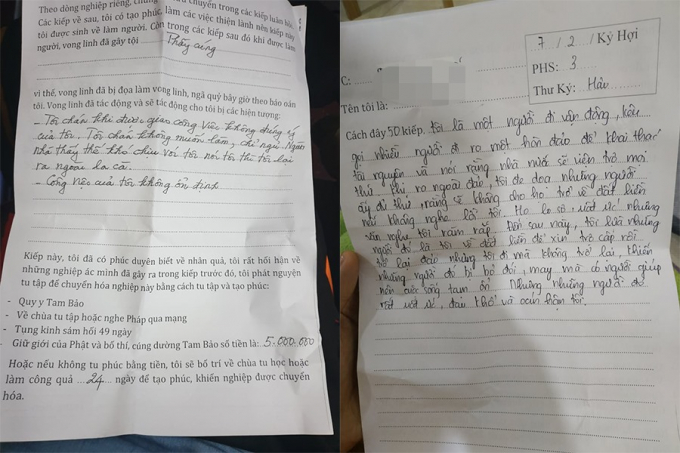 Theo dòng nghiệp riêng, chúng chuyển trong các kiếp luân hồi.
Các kiếp về sau, tôi có tạo phúc, làm các việc thiện lành nên kiếp này
tôi được sinh về làm người. Còn trong các kiếp sau đó khi được làm
người, vong linh đã gây tội Thầy cúng
vì thế, vong linh đã bị đọa làm vong linh, ngã quỷ bây giờ theo báo oán
tôi. Vong linh đã tác động và sẽ tác động cho tôi bị các hiện tượng:
- Tôi chán khi được quan công việc không đúng ý
của tôi. Tôi chán không muốn làm, chỉ ngủ. Người
nhà thấy thế khó chịu với tôi nói tôi thì tôi lại
ra ngoài la cà.
- Công việc của tôi không ổn định
Kiếp này, tôi đã có phúc duyên biết về nhân quả, tôi rất hối hận về
những nghiệp ác mình đã gây ra trong kiếp trước đó, tôi phát nguyện
tu tập để chuyển hóa nghiệp này bằng cách tu tập và tạo phúc:
- Quy y Tam Bảo
- Về chùa tu tập hoặc nghe Pháp qua mạng
- Tụng kinh sám hối 49 ngày
- Giữ giới của Phật và bố thí, cúng dường Tam Bảo số tiền là: 5.000.000
Hoặc nếu không tu phúc bằng tiền, tôi sẽ bố trí về chùa tu học hoặc
làm công quả ...24... ngày để tạo phúc, khiến nghiệp được chuyển
hóa.
7 / 2 / Kỷ Hợi
PHS: 3
Thư Ký: Hảo
C:
Tên tôi là:
Cách đây 50 kiếp. tôi là một người đi vận động, kêu
gọi nhiều người đi ra một hòn đảo để khai thác
tài nguyên và nói rằng nhà nước sẽ viện trợ mọi
thứ. Khi ra ngoài đảo, tôi đe dọa những người
ấy đủ thứ rằng sẽ không cho họ trở về đất liền
nếu không nghe lời tôi. Họ lo sợ, uất ức nhưng
vẫn nghe tôi răm rắp. Đến sau này, tôi lừa những
người đó là tôi về đất liền để xin trợ cấp rồi
trở lại đảo nhưng tôi đi mà không trở lại, khiến
những người đó bị bỏ đói, may mà có người giúp
nên cuộc sống tạm ổn. Nhưng những người đó
rất uất ức, đau khổ và oán hận tôi.